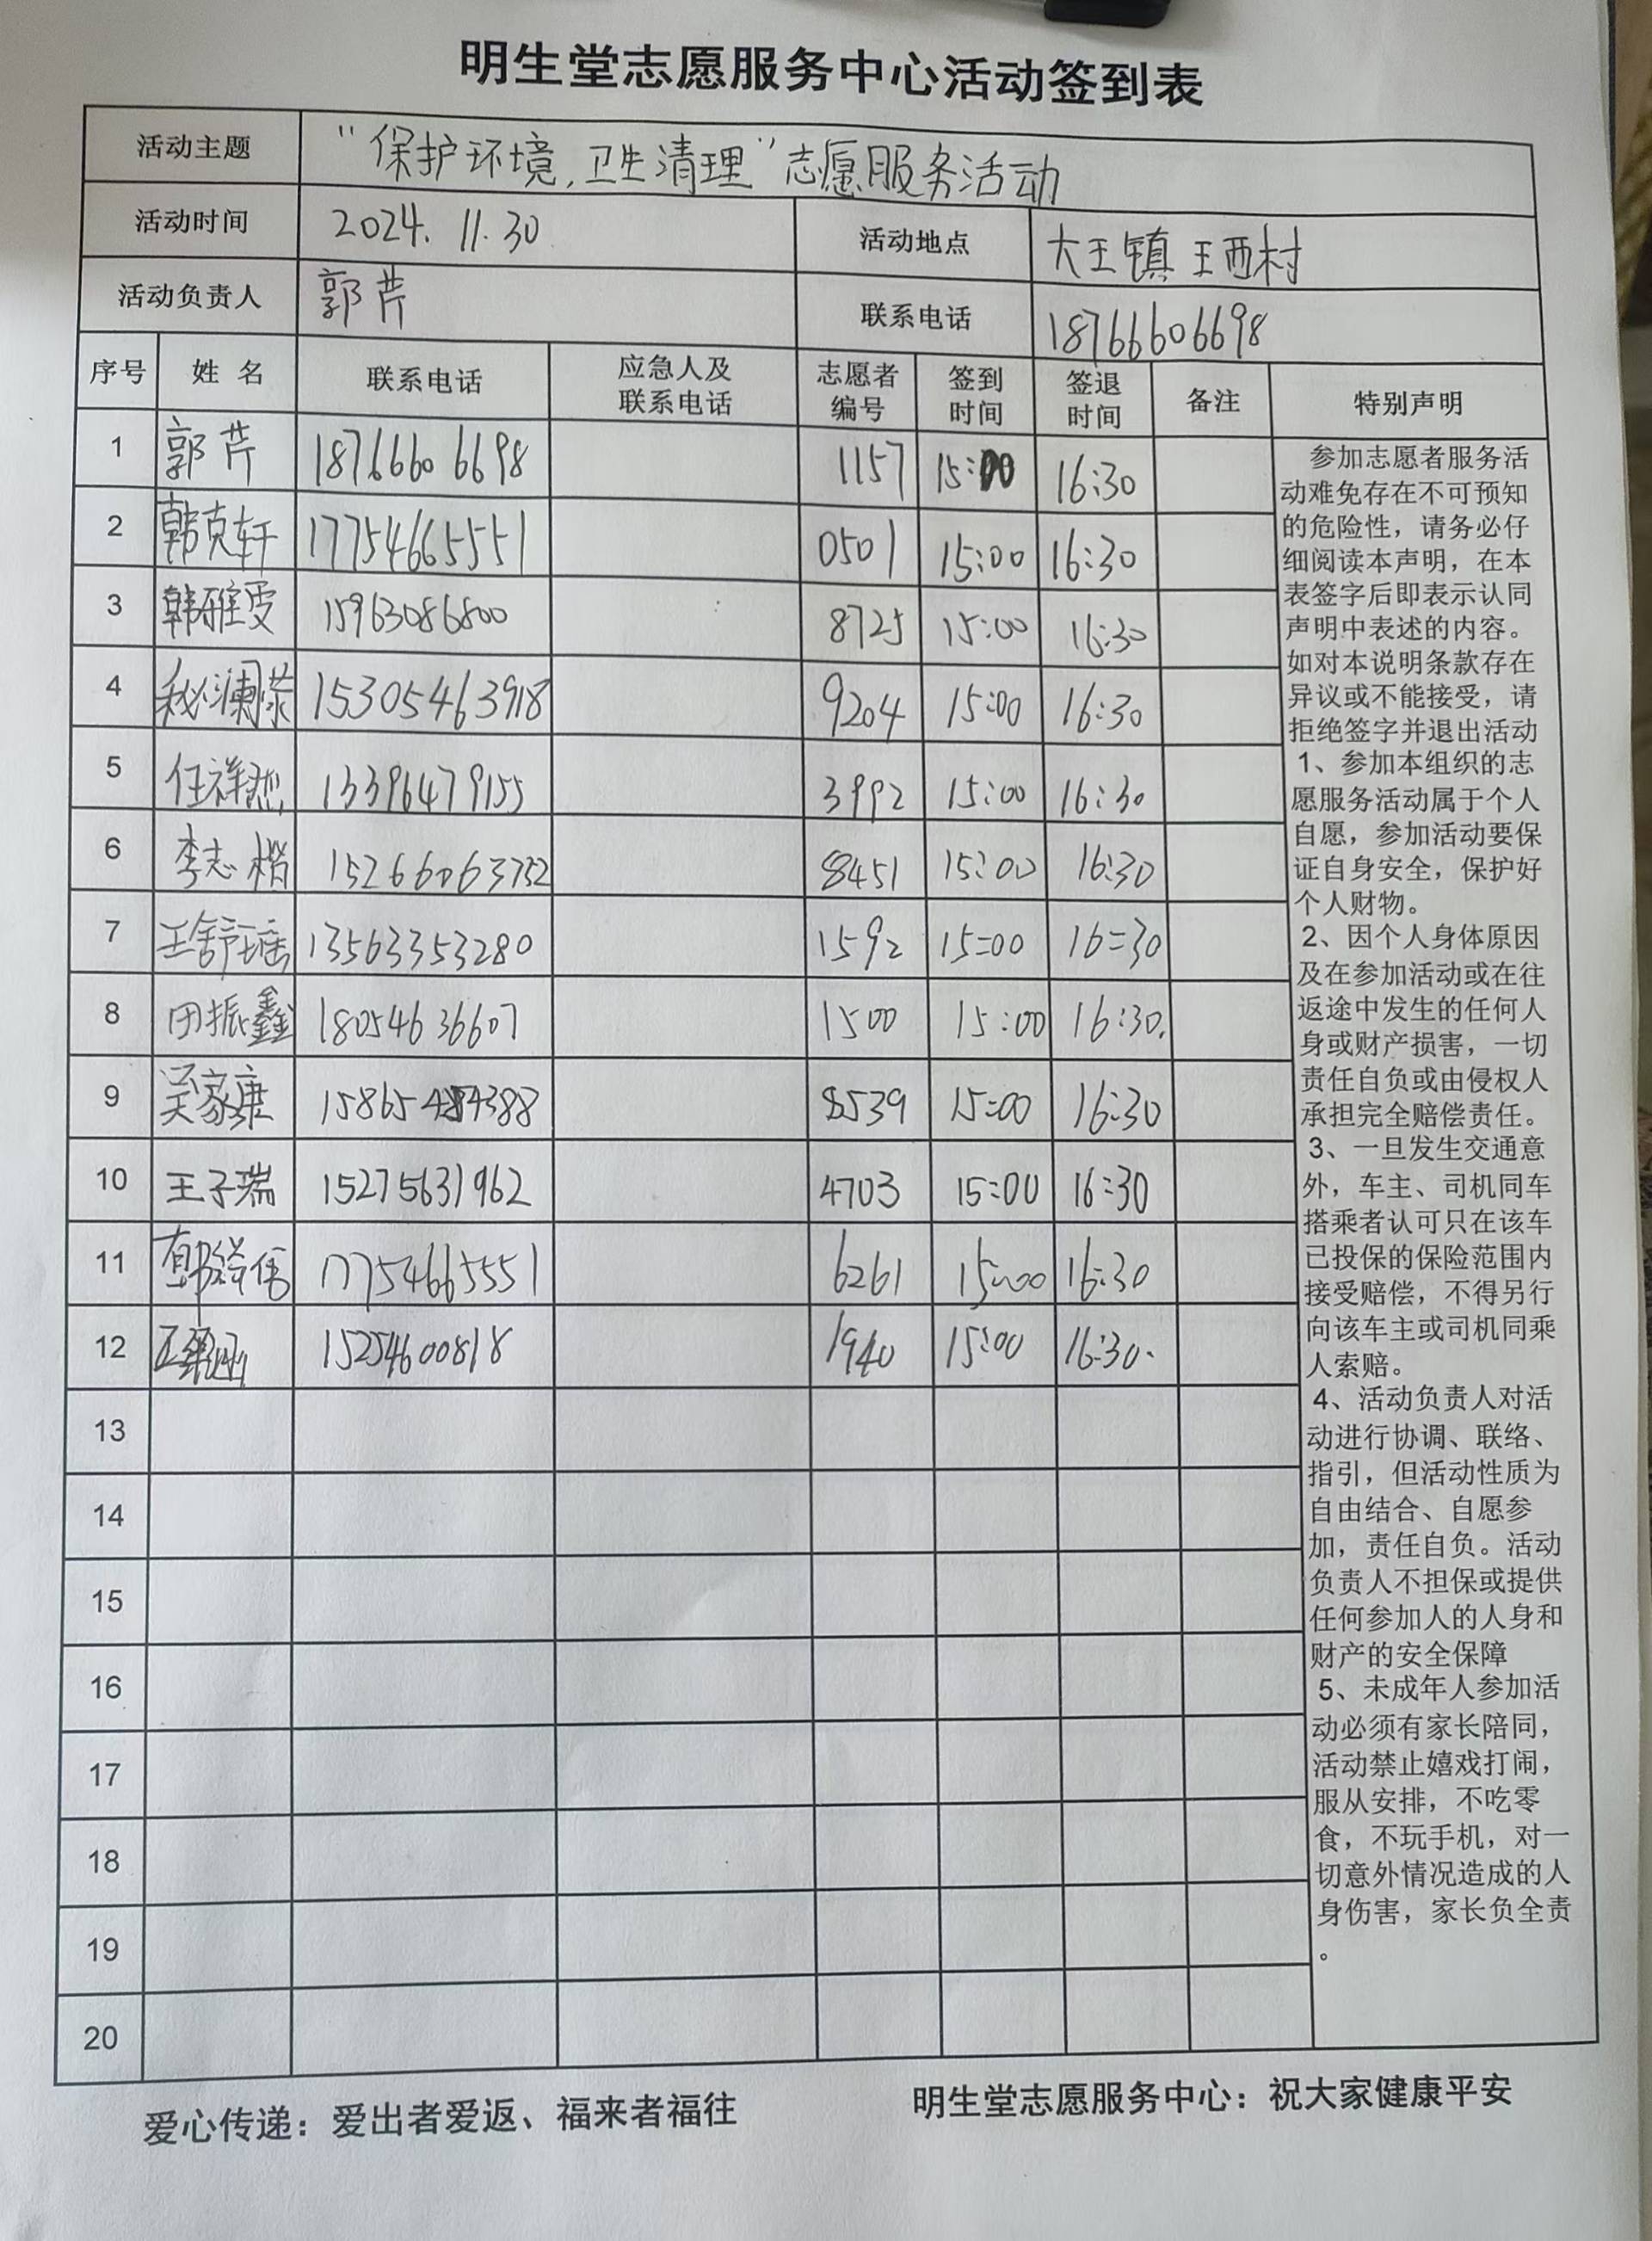 明生堂志愿服务中心活动签到表
活动主题 “保护环境,卫生清理”志愿服务活动
活动时间 2024.11.30 活动地点 大王镇王西村
活动负责人 郭芹 联系电话 18766606698
序号 姓名 联系电话 应急人及联系电话 志愿者编号 签到时间 签退时间 备注 特别声明
1 郭芹 18766606698 1157 15:00 16:30
2 韩克轩 17754665551 0501 15:00 16:30
3 韩雅雯 15963086800 8725 15:00 16:30
4 15305463918 9204 15:00 16:30
5 任祥 13396479155 3992 15:00 16:30
6 李志楷 15266063752 8451 15:00 16:30
7 王舒瑶 13563353280 1592 15:00 16:30
8 田振鑫 18054636607 1500 15:00 16:30.
9 吴家康 8539 15:00 16:30
10 王子瑞 15275631962 4703 15:00 16:30
11 17754665551 6261 15:00 16:30
12 15254600818 1940 15:00 16:30.
13
14
15
16
17
18
19
20
参加志愿者服务活
动难免存在不可预知
的危险性，请务必仔
细阅读本声明，在本
表签字后即表示认同
声明中表述的内容。
如对本说明条款存在
异议或不能接受，请
拒绝签字并退出活动
1、参加本组织的志
愿服务活动属于个人
自愿，参加活动要保
证自身安全，保护好
个人财物。
2、因个人身体原因
及在参加活动或在往
返途中发生的任何人
身或财产损害，一切
责任自负或由侵权人
承担完全赔偿责任。
3、一旦发生交通意
外，车主、司机同车
搭乘者认可只在该车
已投保的保险范围内
接受赔偿，不得另行
向该车主或司机同乘
人索赔。
4、活动负责人对活
动进行协调、联络、
指引，但活动性质为
自由结合、自愿参
加，责任自负。活动
负责人不担保或提供
任何参加人的人身和
财产的安全保障
5、未成年人参加活
动必须有家长陪同，
活动禁止嬉戏打闹，
服从安排，不吃零
食，不玩手机，对一
切意外情况造成的人
身伤害，家长负全责
。
爱心传递：爱出者爱返、福来者福往 明生堂志愿服务中心：祝大家健康平安